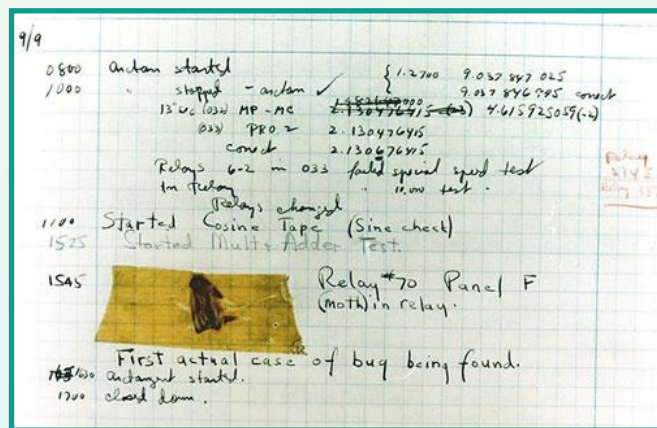 9/9
0800 antan started
1000 " stopped - antan ✓ { 1.2700 9.037 847 025
9.037 846 995 conect
13"uc (032) MP - MC 2.130476415 (-3) 4.615925059(-2)
(033) PRO 2 2.130476415
conect 2.130676415
Relays 6-2 in 033 failed special speed test
In Relay " 10.000 test .
Relays changed
Relay
1100 Started Cosine Tape (Sine check)
1525 Started Mult + Adder Test.
1545 Relay #70 Panel F
(moth) in relay.
First actual case of bug being found.
1630 antangent started.
1700 closed down.